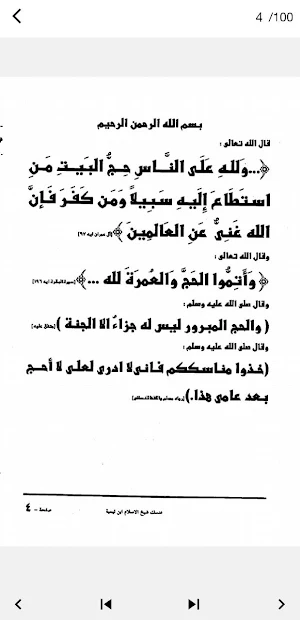 4 /100
بسم الله الرحمن الرحيم
قال الله تعالى :
﴿...وَللهِ عَلَى النَّاسِ حِجُّ البَيتِ مَنِ
استَطَاعَ إِلَيهِ سَبِيلاً وَمَن كَفَرَ فَإِنَّ
الله غَنِيٌّ عَنِ العَالَمِينَ ﴾(آل عمران آية ٩٧)
وقال الله تعالى :
﴿ وَأَتِمُّوا الحَجَّ وَالعُمرَةَ لله ...﴾(سورة البقرة آية ١٩٦)
وقال صلى الله عليه وسلم :
( والحج المبرور ليس له جزاءُ الا الجنة )(متفق عليه)
وقال صلى الله عليه وسلم :
(خذوا مناسككم فاني لا ادرى لعلى لا أحج
بعد عامى هذا.)(رواه مسلم
منسك شيخ الاسلام ابن تيمية
صفحة - ٤